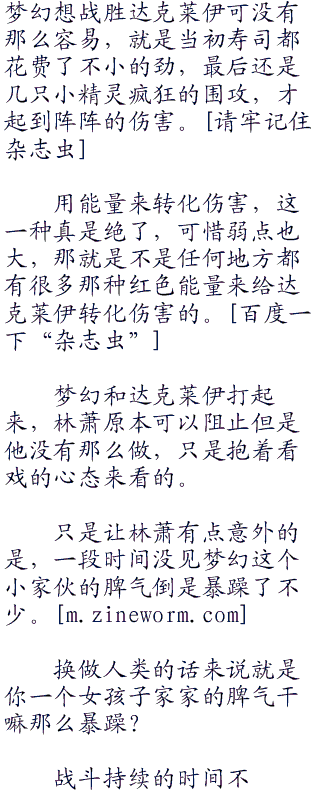 梦幻想战胜达克莱伊可没有
那么容易，就是当初寿司都
花费了不小的劲，最后还是
几只小精灵疯狂的围攻，才
起到阵阵的伤害。[请牢记住
杂志虫]
用能量来转化伤害，这
一种真是绝了，可惜弱点也
大，那就是不是任何地方都
有很多那种红色能量来给达
克莱伊转化伤害的。[百度一
下“杂志虫”]
梦幻和达克莱伊打起
来，林萧原本可以阻止但是
他没有那么做，只是抱着看
戏的心态来看的。
只是让林萧有点意外的
是，一段时间没见梦幻这个
小家伙的脾气倒是暴躁了不
少。[m.zineworm.com]
换做人类的话来说就是
你一个女孩子家家的脾气干
嘛那么暴躁？
战斗持续的时间不